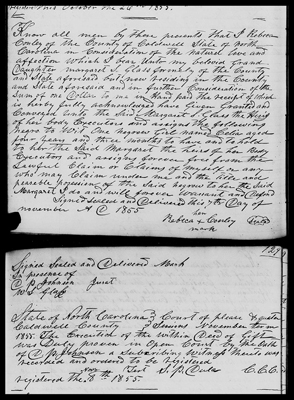 Know all men by these presents that I Rebecca
Conley of the County of Caldwell State of North
Carolina in Consideration of the natural love and
affection which I bear unto my beloved Grand
Daughter Margaret L Glass of the County
and State aforesaid but now residing in the County
and State aforesaid and in further Consideration of the
Sum of one Dollar to me in hand paid the receipt of which
is hereby fully acknowledged have Given Granted and
Conveyed unto the Said Margaret L Glass the Heirs
of her Body Executors and assigns the following
negro to Wit. One negroes Girl named Celia aged
four years and three months to have and to hold
to her the Said Margaret the heirs of her Body
Executors and assigns forever free from the
Lawful Claim or Claims of myself or any
who may Claim under me and the title and
peaceable possession of the Said negroes to her the Said
Margaret I do and will forever Warrant and Defend
Signed Sealed and Delivered this 7th Day of
november A D 1855
her
Rebecca Conley Seal
mark
127
Signed Sealed and Delivered Mark
in presence of
C P Johnson Jurat
W S Glass
State of North Carolina Court of pleas &
Caldwell County Sessions November Term
1855. The Execution of the within Deed of Gift
was Duly proven in Open Court by the oath
of C. P. Johnson a Subscribing Witness thereto was
recorded and ordered to be registered
Test S. P. C.C.C.
registered the Nov 1855.